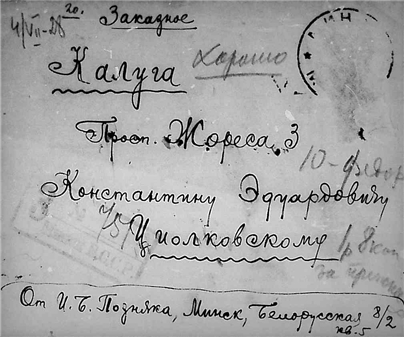 4/VII-28
20. Заказное
Калуга
Хорошо
Просп. Жореса, 3
Константину Эдуардовичу
Циолковскому
От И. Б. Позняка, Минск, Белорусская 8/2
кв. 5